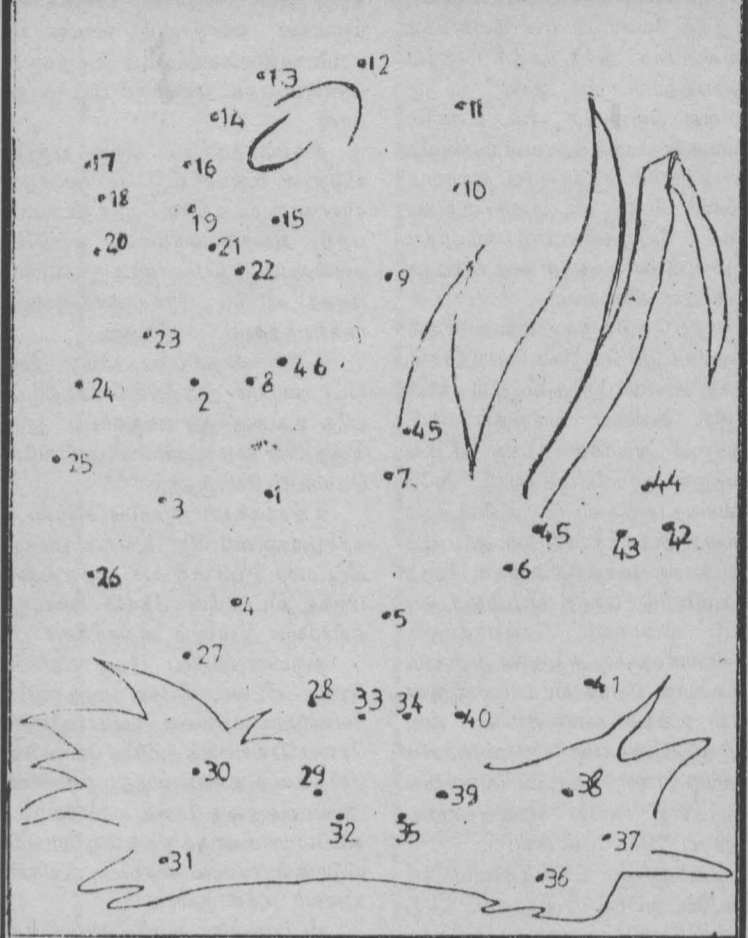 13 12
14 11
17 16
18 10
19 15
20 21
22 9
23
46
24 2 8
45
25 7
3 1 44
45 43 42
6
26
4 5
27 41
28 33 34 40
30 29 39 38
32 35
37
31 36